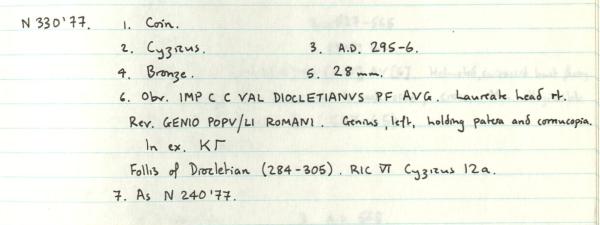 N 330'77. 1. Coin.
2. Cyzicus. 3. A.D. 295-6.
4. Bronze. 5. 28 mm.
6. Obv. IMP C C VAL DIOCLETIANVS PF AVG. Laureate head rt.
Rev. GENIO POPV/LI ROMANI. Genius, left, holding patera and cornucopia.
In ex. KΓ
Follis of Diocletian (284-305). RIC VI Cyzicus 12a.
7. As N 240'77.